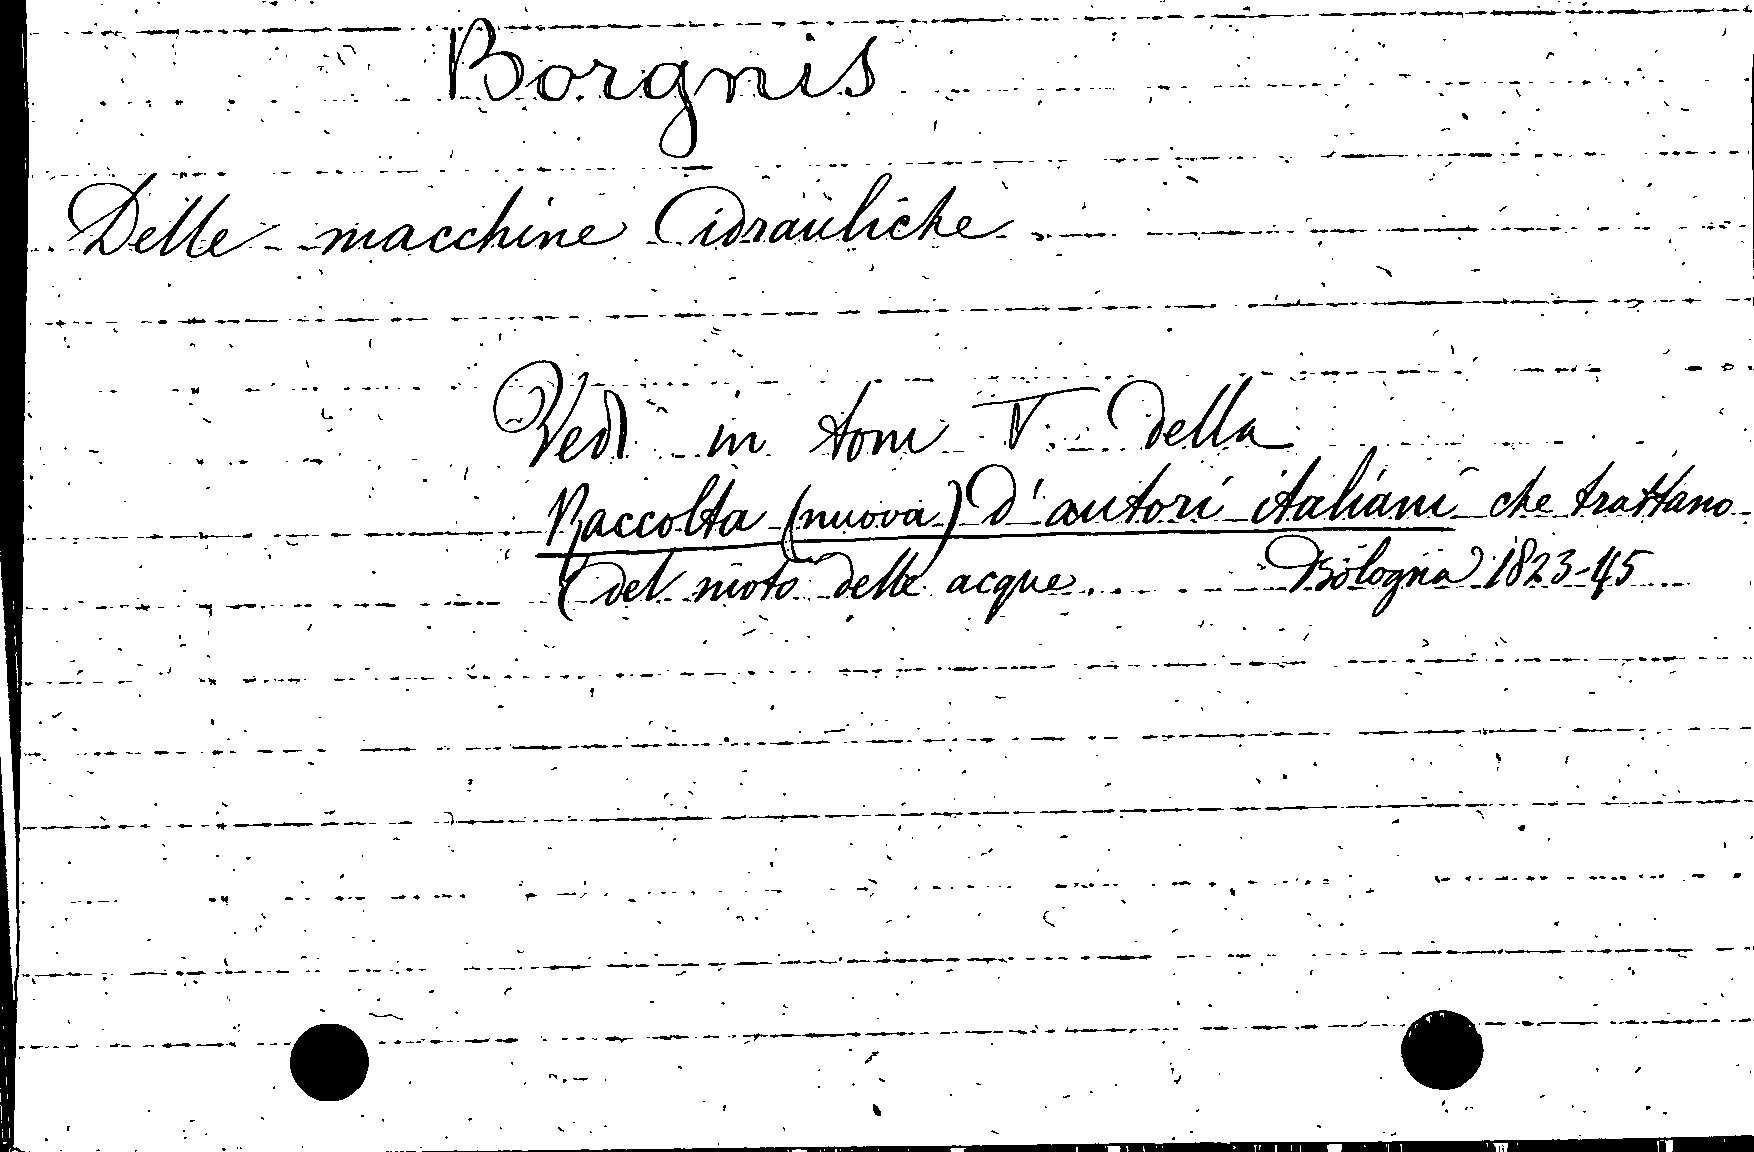 Borgnis
Delle macchine idrauliche
Vedi in tom V. della
Raccolta (nuova) d'autori italiani che trattano
del moto delle acque. Bologna 1823-45